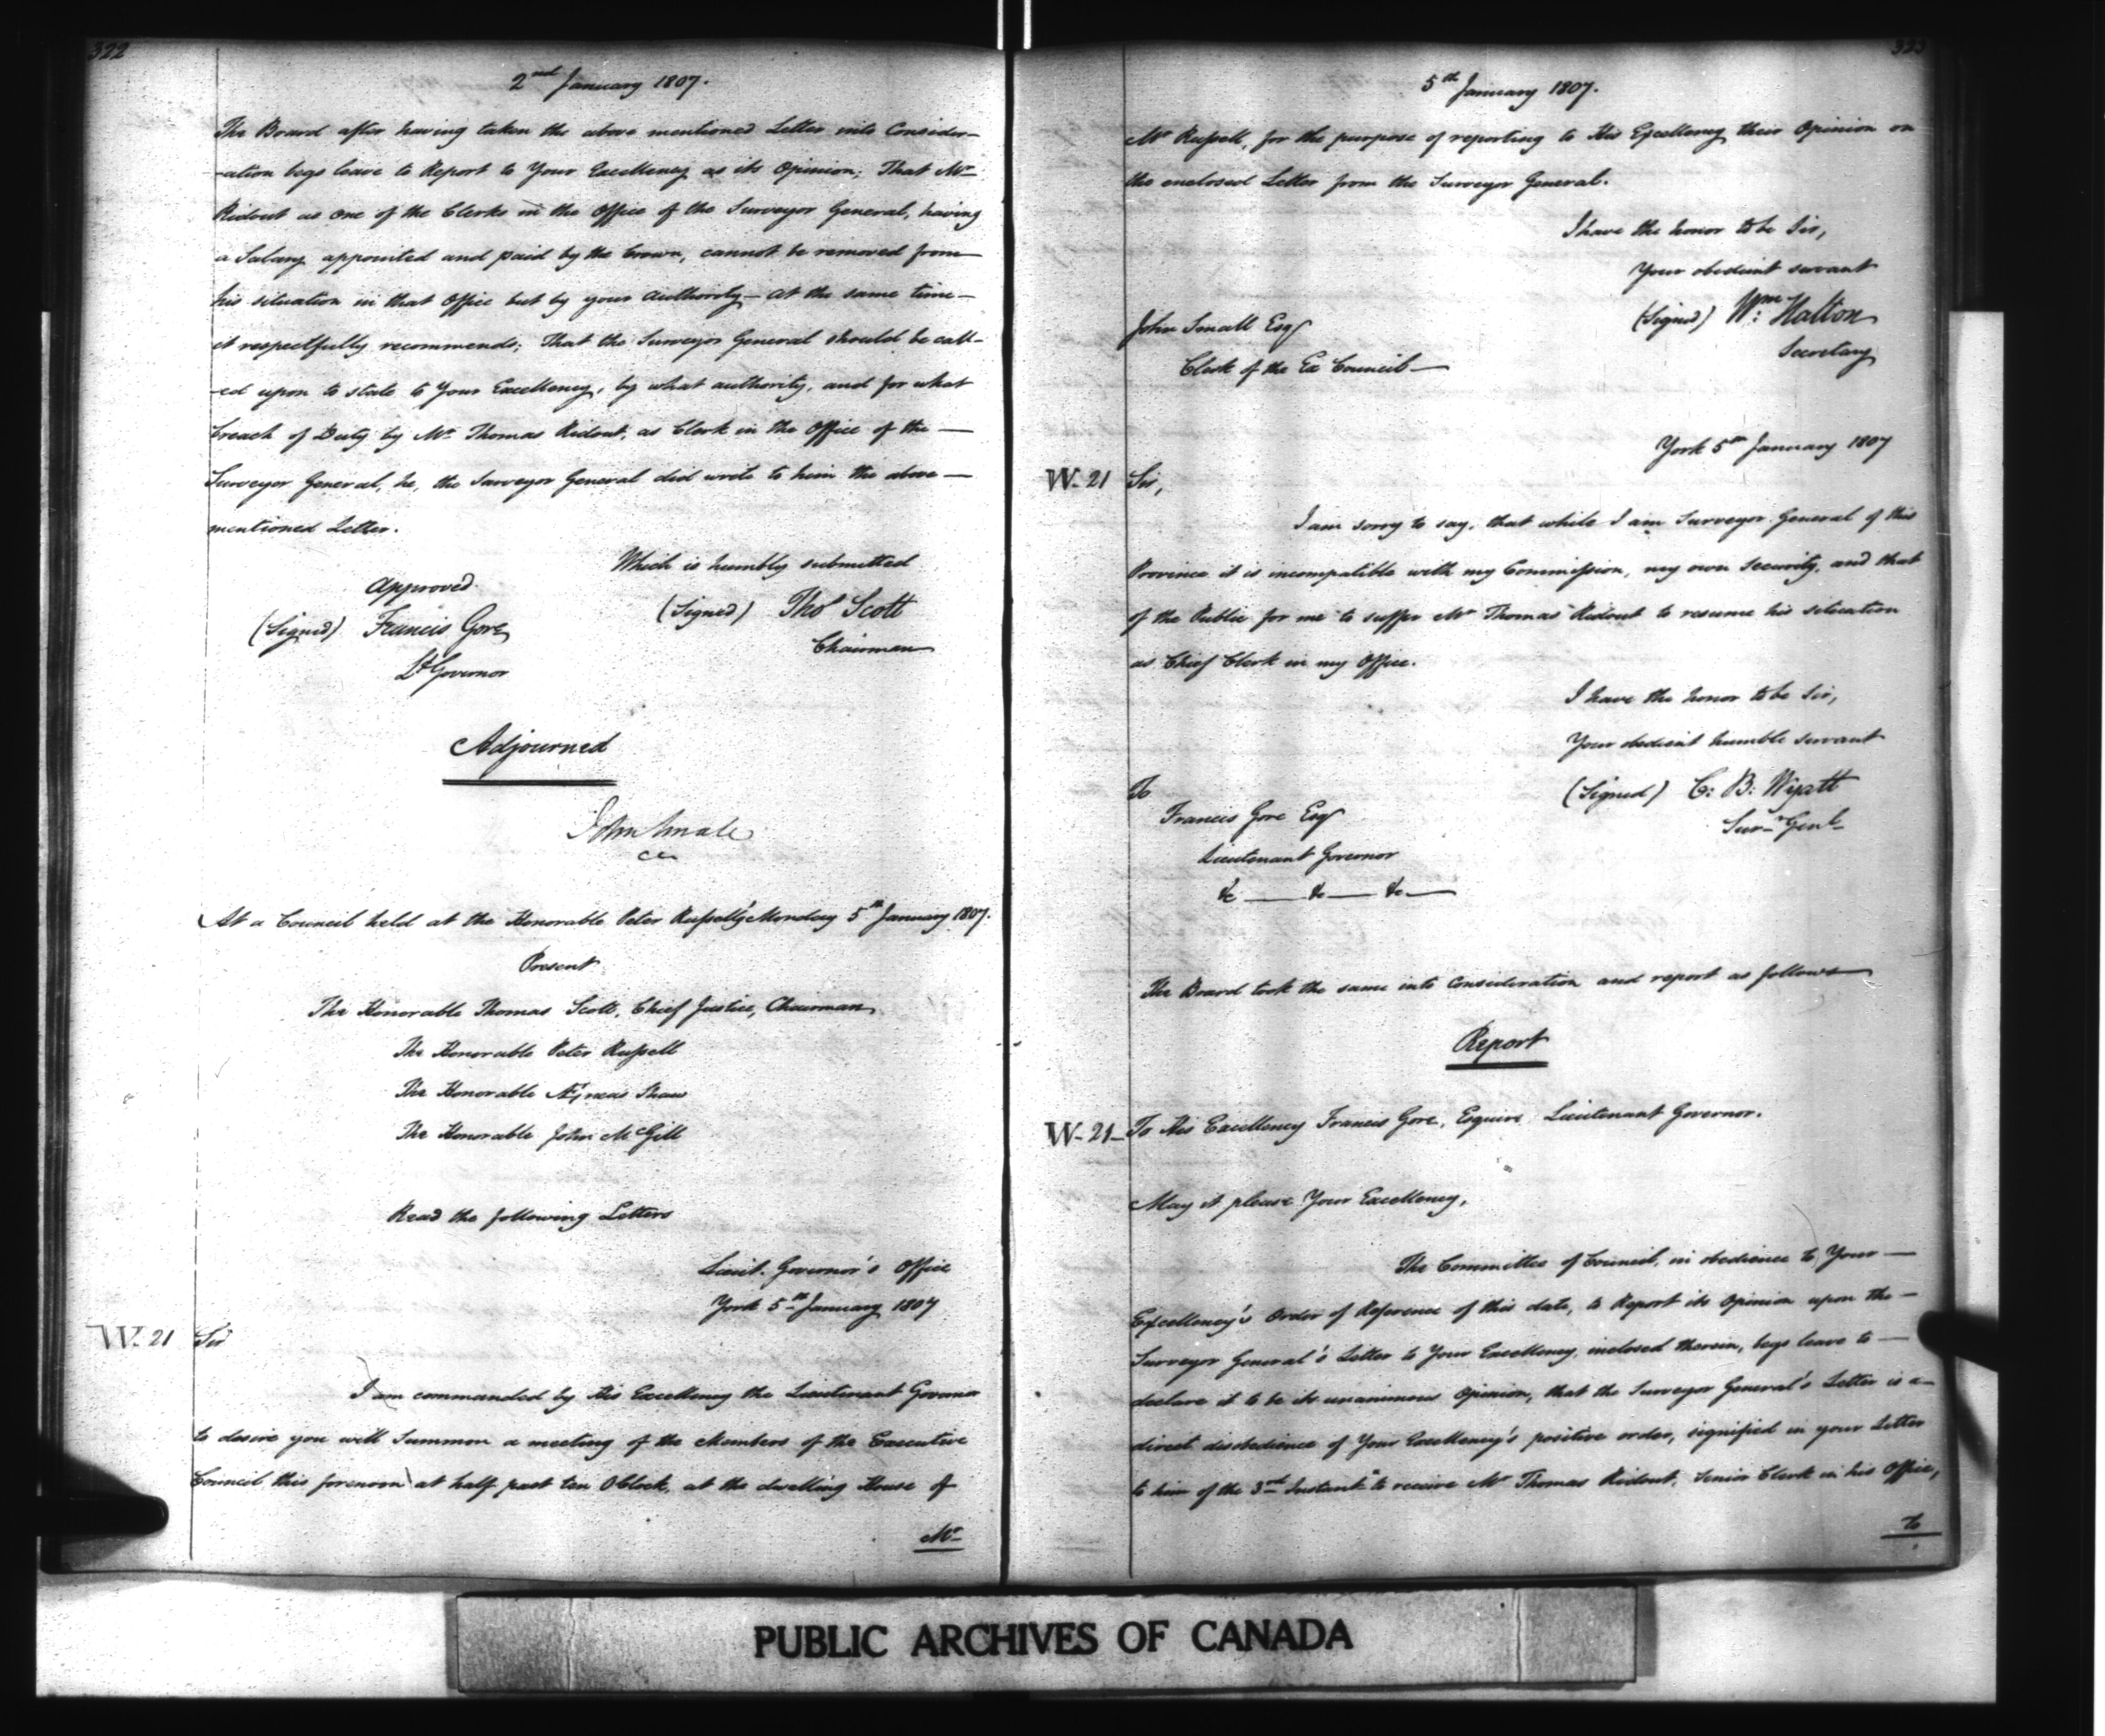 322
2nd January 1807.
The Board after having taken the above mentioned Letter into Consider-
-ation begs leave to Report to Your Excellency as its Opinion; That Mr
Ridout as one of the Clerks in the Office of the Surveyor General, having
a Salary appointed and paid by the Crown, cannot be removed from
his situation in that Office but by your Authority - at the same time -
it respectfully recommends; That the Surveyor General should be call-
-ed upon to state to Your Excellency, by what authority, and for what
breach of Duty by Mr Thomas Ridout, as Clerk in the Office of the —
Surveyor General, he, the Surveyor General did write to him the above —
mentioned Letter.
Which is humbly submitted
Approved
(Signed) Thos Scott
Chairman
(Signed) Francis Gore
Lt Governor
Adjourned
John Small
At a Council held at the Honorable Peter Russell's Monday 5th January 1807.
Present
The Honorable Thomas Scott, Chief Justice, Chairman
The Honorable Peter Russell
The Honorable Æneas Shaw
The Honorable John McGill
Read the following Letters
Lieut. Governor's Office
York 5th January 1807
W-21 Sir
I am commanded by His Excellency the Lieutenant Governor
to desire you will Summon a meeting of the Members of the Executive
Council this forenoon at half past ten OClock, at the dwelling House of
Mr
323
5th January 1807.
Mr Russell, for the purpose of reporting to His Excellency their Opinion on
the enclosed Letter from the Surveyor General.
I have the honor to be Sir,
Your obedient servant
(Signed) Wm: Halton
Secretary
John Small Esqr
Clerk of the Ex Council —
York 5th January 1807
W-21 Sir,
I am sorry to say, that while I am Surveyor General of this
Province it is incompatible with my Commission, my own Security, and that
of the Public for me to suffer Mr Thomas Ridout to resume his situation
as Chief Clerk in my Office.
I have the honor to be Sir,
Your obedient humble servant
(Signed) C: B: Wyatt
Surr Genl
To
Francis Gore Esqr
Lieutenant Governor
&c — &c — &c —
The Board took the same into Consideration and report as follows —
Report
W-21- To His Excellency Francis Gore, Esquire Lieutenant Governor.
May it please Your Excellency,
The Committee of Council, in obedience to Your —
Excellency's Order of Reference of this date, to Report its Opinion upon the —
Surveyor General's Letter to Your Excellency, inclosed therein, begs leave to —
declare it to be its unanimous Opinion, that the Surveyor General's Letter is a —
direct disobedience of Your Excellency's positive order, signified in your Letter
to him of the 3rd Instant "to receive Mr Thomas Ridout, Senior Clerk in his Office,
to
PUBLIC ARCHIVES OF CANADA